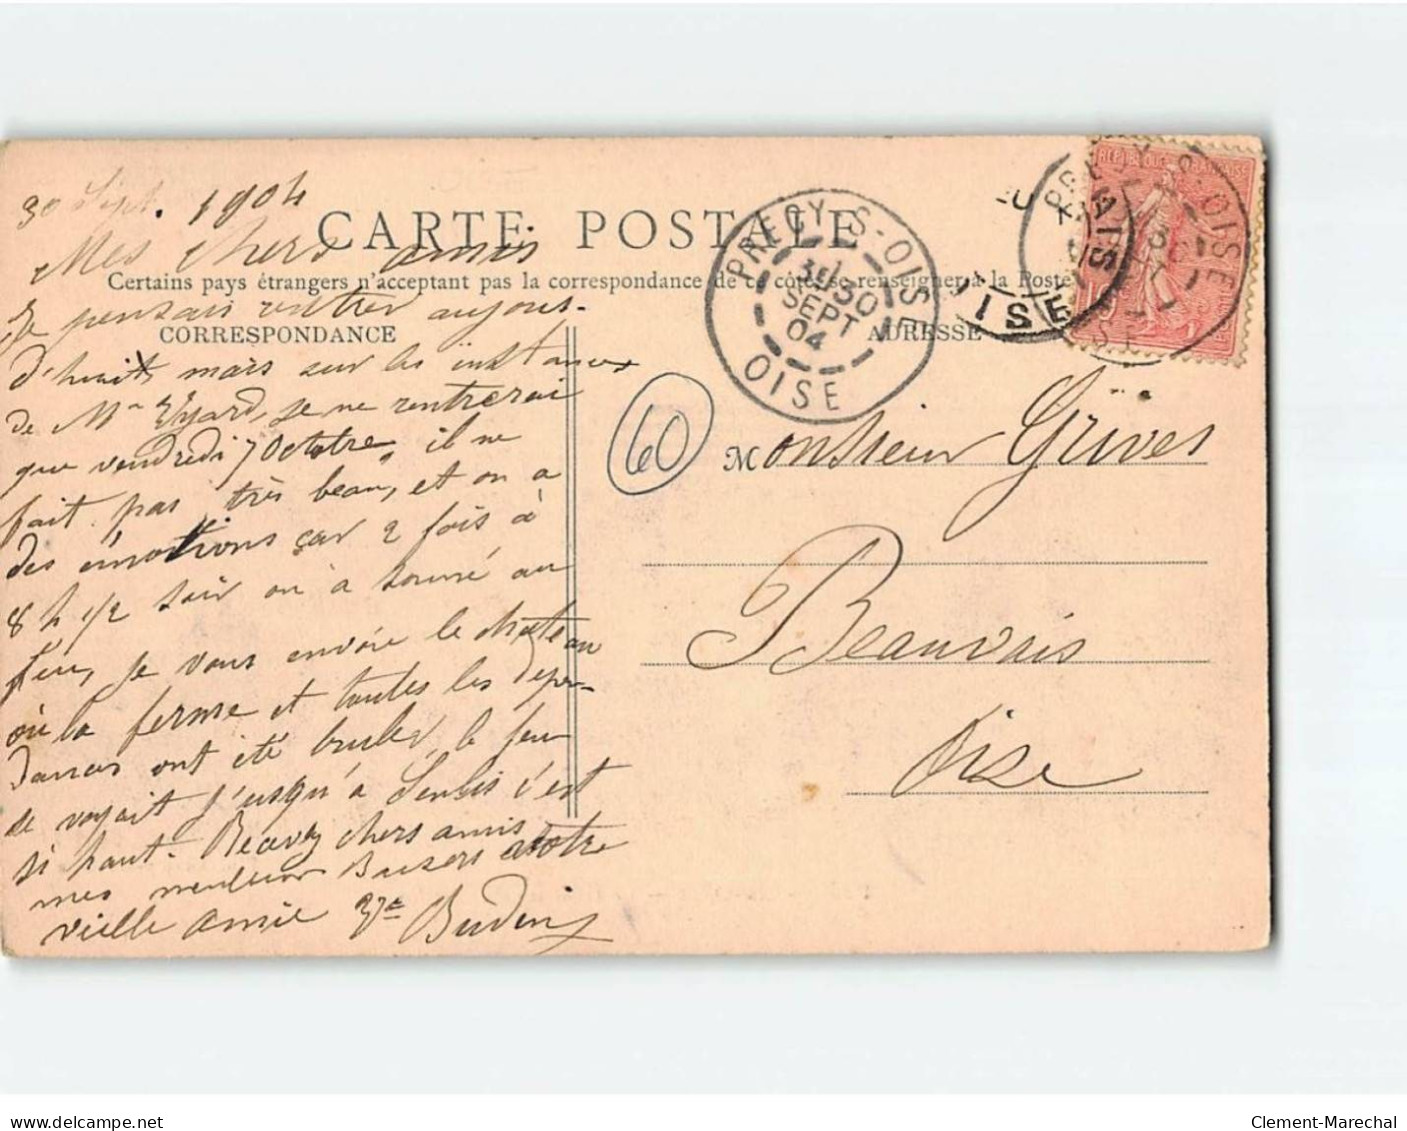 30 Sept. 1904
CARTE POSTALE
Mes chers amis
Certains pays étrangers n'acceptant pas la correspondance de ce côté, se renseigner à la Poste
Je pensais rentrer aujour-
CORRESPONDANCE
d'huit, mais sur les instances
de Mr je ne rentrerai
que vendredi 7 Octobre, il ne
fait pas très beau, et on a
des émotions car 2 fois à
8 h 1/2 soir on à sonné au
feu, je vous envoie le château
où la ferme et toutes les dépen-
dances ont été bruler, le feu
se voyait j'usqu'a Senlis c'est
si haut. Recevez chers amis
mes meilleurs Baisers votre
vieille amie Vve Budin
ADRESSE
PRECY-S-OISE
1
30
SEPT
04
OISE
PRECY S. OISE
OISE
REPUBLIQUE FRANCAISE
60
Monsieur Grives
Beauvais
Oise
Clement-Marechal